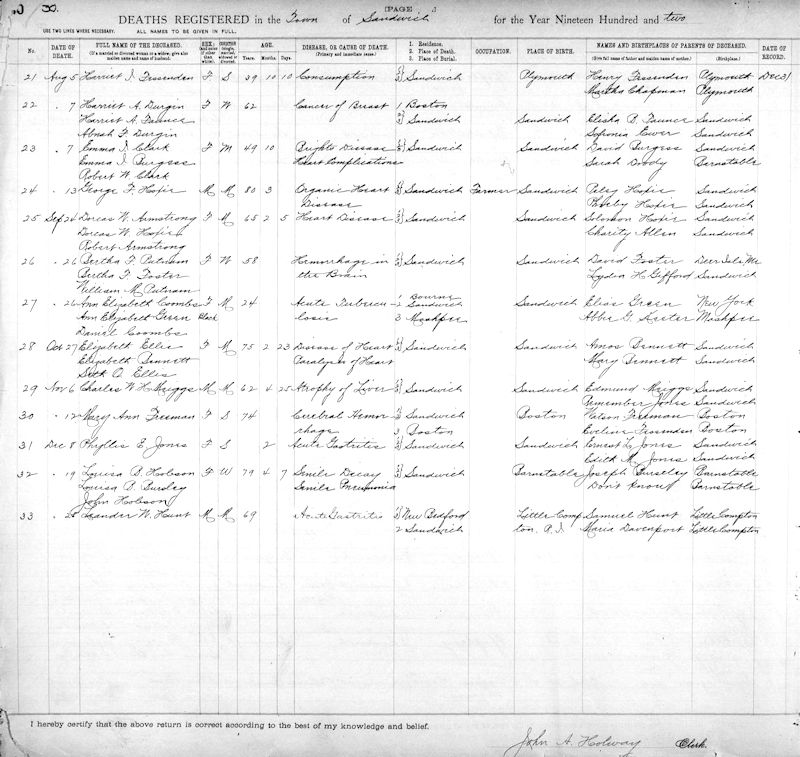 30.
(PAGE
DEATHS REGISTERED in the Town of Sandwich for the Year Nineteen Hundred and two
USE TWO LINES WHERE NECESSARY. ALL NAMES TO BE GIVEN IN FULL.
No. DATE OF DEATH. FULL NAME OF THE DECEASED. SEX AGE. DISEASE, OR CAUSE OF DEATH. 1. Residence. 2. Place of Death. 3. Place of Burial. OCCUPATION. PLACE OF BIRTH. NAMES AND BIRTHPLACES OF PARENTS OF DECEASED. DATE OF RECORD.
Years. Months. Days. (Primary and immediate cause.) (Give full name of father and maiden name of mother.) (Birthplace.)
21 Aug 5 Harriet I. Fessenden F S 39 10 10 Consumption Sandwich Plymouth Henry Fessenden Plymouth Dec 31
Martha Chapman Plymouth
22 . 7 Harriet A. Durgin F W 62 Cancer of Breast 1 Boston
Harriet A. Sandwich Sandwich Elisha B. Sandwich
Abnah F. Durgin Sophronia Ewer Sandwich
23 . 7 Emma I. Clark F M 49 10 Brights Disease Sandwich Sandwich David Burgess Sandwich
Emma I. Burgess Heart Complications Sarah Doody Barnstable
Robert W. Clark
24 . 13 George F. Hoxie M M 80 3 Organic Heart Sandwich Farmer Sandwich Hoxie Sandwich
Disease Hoxie Sandwich
25 Sep 26 Dorcas W. Armstrong F M 65 2 5 Heart Disease Sandwich Sandwich Solomon Hoxie Sandwich
Dorcas W. Hoxie Charity Allen Sandwich
Robert Armstrong
26 . 26 Bertha F. Putnam F W 58 Hemorrhage in Sandwich Sandwich David Foster Deer Isle Me
Bertha F. Foster the Brain Lydia H. Gifford Sandwich
William M. Putnam
27 . 26 Ann Elizabeth Coombs F M 24 Acute Tubercu 1 Bourne Sandwich Green New York
Ann Elizabeth Green Black losis 2 Sandwich Abbie G. Mashpee
Daniel Coombs 3 Mashpee
28 Oct 27 Elizabeth Ellis F M 75 2 23 Disease of Heart Sandwich Sandwich Amos Bennett Sandwich
Elizabeth Bennett Paralysis of Heart Mary Bennett Sandwich
Seth O. Ellis
29 Nov 6 Charles W. H. Meiggs M M 62 4 25 Atrophy of Liver Sandwich Sandwich Edmund Meiggs Sandwich
Remember Jones Sandwich
30 . 12 Mary Ann Freeman F S 74 Cerebral Hemor Sandwich Boston Watson Freeman Boston
rhage 3 Boston Eveline Fessenden Boston
31 Dec 8 Phyllis E. Jones F S 2 Acute Gastritis Sandwich Sandwich Ernest L. Jones Sandwich
Edith M. Jones Sandwich
32 . 19 Louisa B. Hobson F W 79 4 7 Senile Decay Sandwich Barnstable Joseph Bursley Barnstable
Louisa B. Bursley Senile Pneumonia Don't Know Barnstable
John Hobson
33 . 25 Leander W. Hunt M M 69 Acute Gastritis New Bedford Little Comp Samuel Hunt Little Compton
2 Sandwich ton. R.I. Maria Davenport Little Compton
I hereby certify that the above return is correct according to the best of my knowledge and belief.
John A. Holway Clerk.